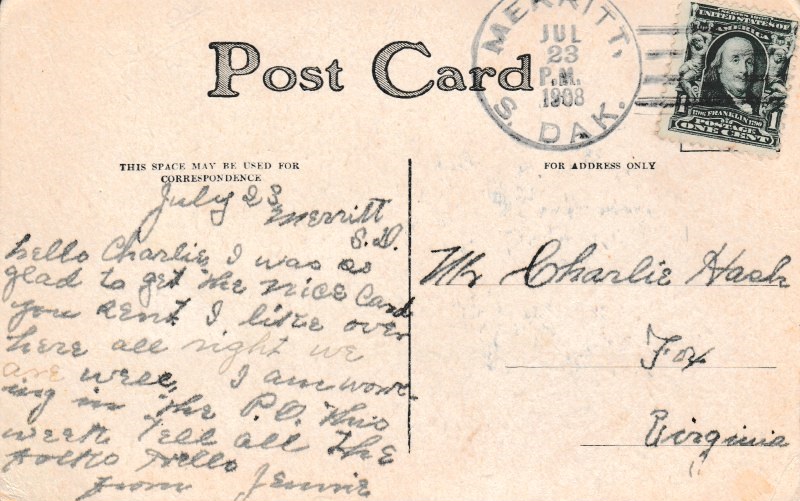 Post Card
MERRITT,
JUL
23
P.M.
1908
S. DAK.
UNITED STATES OF
AMERICA
1706 FRANKLIN 1790
POSTAGE
1 ONE CENT 1
THIS SPACE MAY BE USED FOR
CORRESPONDENCE
FOR ADDRESS ONLY
July 23
Merritt
S.D.
hello Charlie, I was so
glad to get the nice card
you sent I like over
here all right we
are well, I am work-
ing in the P.O. this
week. Tell all the
folks hello
from Jennie
Mr Charlie Hash
Fox
Virginia